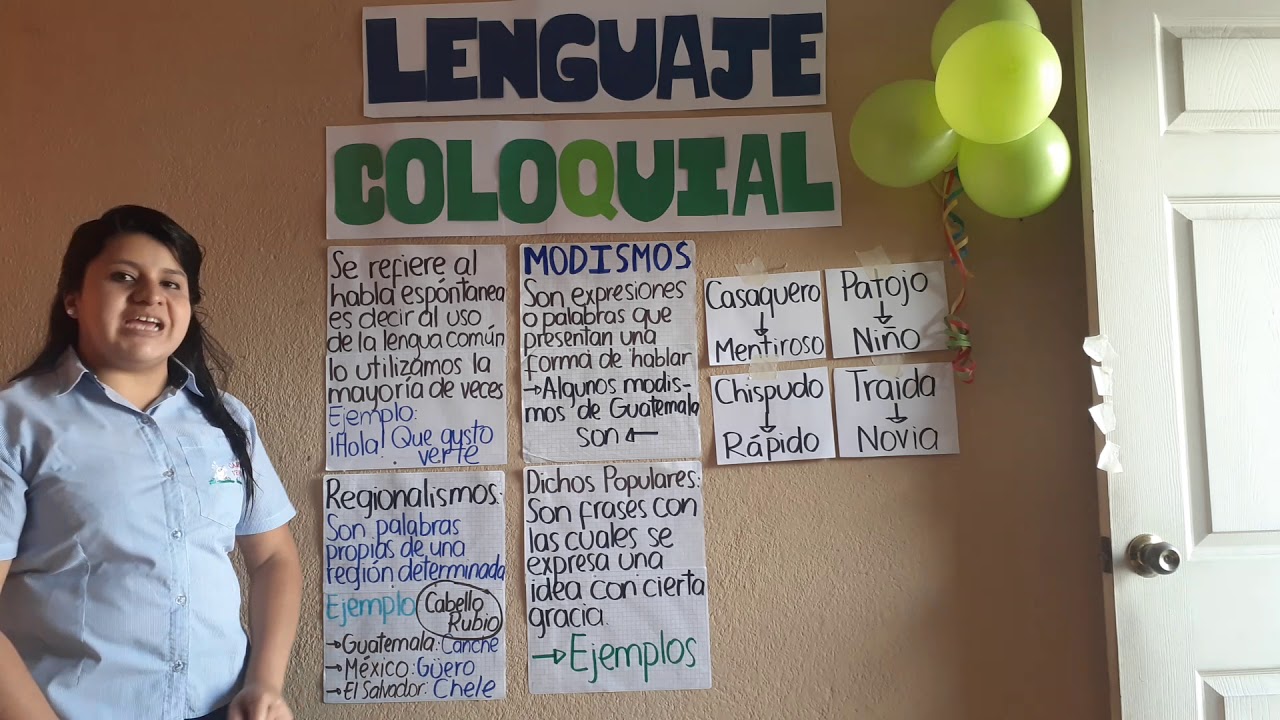 LENGUAJE
COLOQUIAL
Se refiere al
habla espóntanea
es decir al uso
de la lengua común
lo utilizamos la
mayoría de veces
Ejemplo:
¡Hola! Que gusto
verte
MODISMOS
Son expresiones
o palabras que
presentan una
forma de hablar
→Algunos modis-
mos de Guatemala
son ←
Casaquero
↓
Mentiroso
Patojo
↓
Niño
Chispudo
↓
Rápido
Traida
↓
Novia
Regionalismos:
Son palabras
propias de una
región determinada
Ejemplo Cabello
Rubio
→Guatemala: Canche
→México: Güero
→El Salvador: Chele
Dichos Populares:
Son frases con
las cuales se
expresa una
idea con cierta
gracia.
→Ejemplos